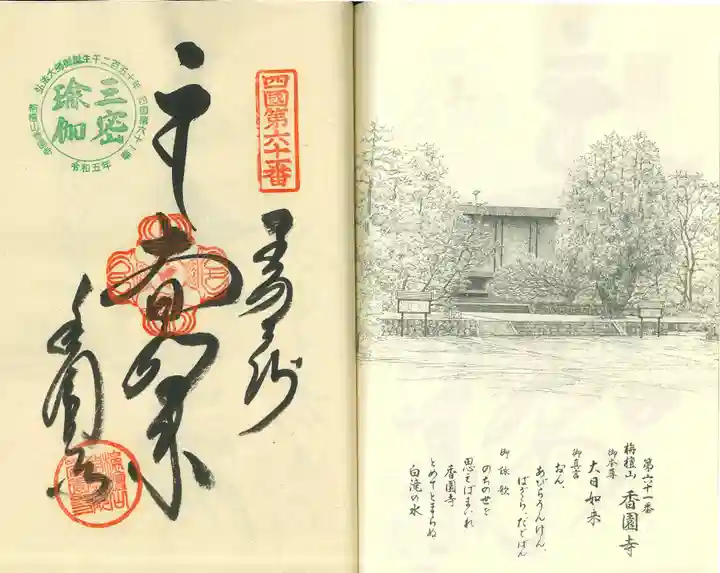 四國第六十一番
弘法大師御誕生千二百五十年
四国第六十一番
三密
瑜伽
令和五年
大日如来
香園寺
第六十一番
栴檀山 香園寺
御本尊
大日如来
御真言
おん、
あびらうんけん、
ばざら、だどばん
御詠歌
のちの世を
思えばまいれ
香園寺
とめてとまらぬ
白滝の水